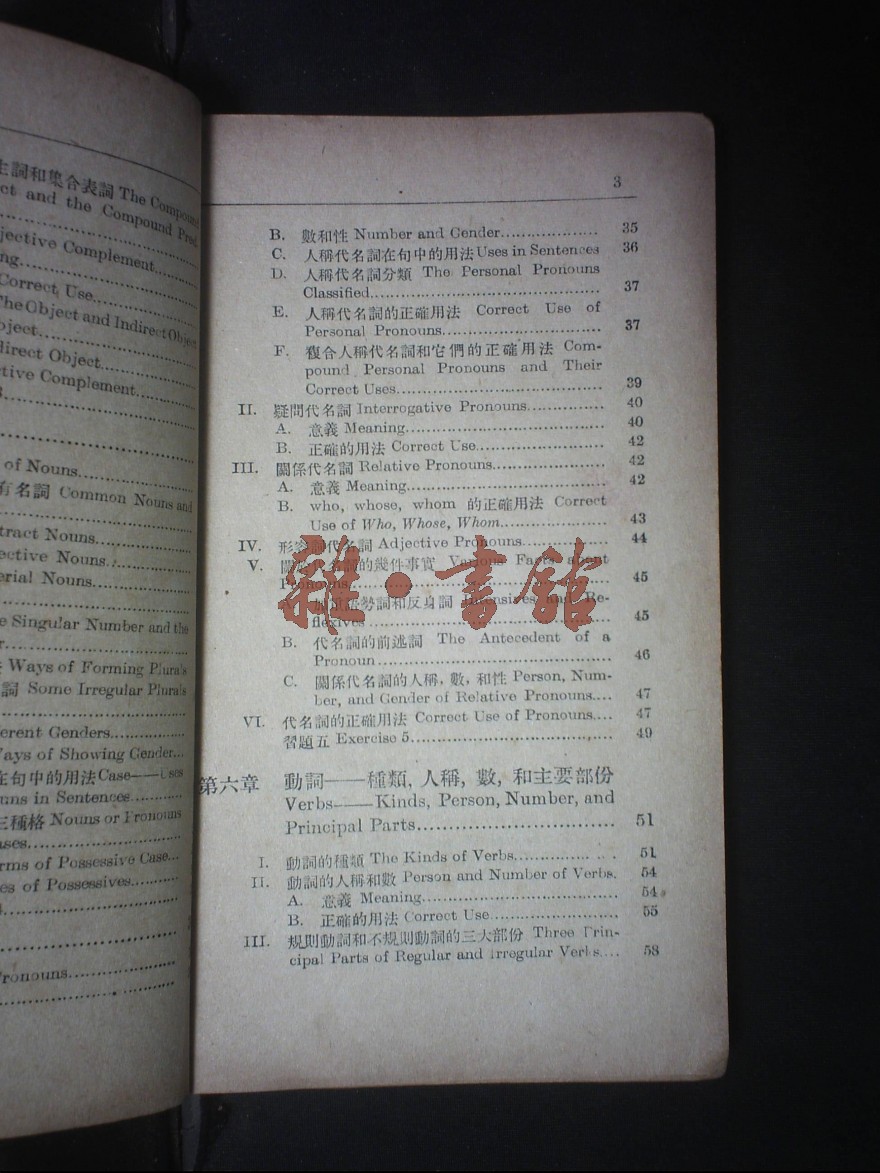 主詞和集合表詞 The Compound
ct and the Compound Pred
jective Complement
ng
Correct Use
The Object and Indirect Object
bject
direct Object
tive Complement
of Nouns
有名詞 Common Nouns and
tract Nouns
ective Nouns
erial Nouns
e Singular Number and the
r
Ways of Forming Plurals
詞 Some Irregular Plurals
erent Genders
Ways of Showing Gender
在句中的用法 Case——Uses
uns in Sentences
三種格 Nouns or Pronouns
ases
rms of Possessive Case
es of Possessives
Pronouns
3
B. 數和性 Number and Gender 35
C. 人稱代名詞在句中的用法 Uses in Sentences 36
D. 人稱代名詞分類 The Personal Pronouns
Classified 37
E. 人稱代名詞的正確用法 Correct Use of
Personal Pronouns 37
F. 複合人稱代名詞和它們的正確用法 Com-
pound Personal Pronouns and Their
Correct Uses 39
II. 疑問代名詞 Interrogative Pronouns 40
A. 意義 Meaning 40
B. 正確的用法 Correct Use 42
III. 關係代名詞 Relative Pronouns 42
A. 意義 Meaning 42
B. who, whose, whom 的正確用法 Correct
Use of Who, Whose, Whom 43
IV. 形容詞代名詞 Adjective Pronouns 44
V. 關於代名詞的幾件事實 Various Facts about
Pronouns 45
A. 加重語勢詞和反身詞 Intensives and Re-
flexives 45
B. 代名詞的前述詞 The Antecedent of a
Pronoun 46
C. 關係代名詞的人稱, 數, 和性 Person, Num-
ber, and Gender of Relative Pronouns 47
VI. 代名詞的正確用法 Correct Use of Pronouns 47
習題五 Exercise 5 49
第六章 動詞——種類, 人稱, 數, 和主要部份
Verbs——Kinds, Person, Number, and
Principal Parts 51
I. 動詞的種類 The Kinds of Verbs 51
II. 動詞的人稱和數 Person and Number of Verbs. 54
A. 意義 Meaning 54
B. 正確的用法 Correct Use 55
III. 規則動詞和不規則動詞的三大部份 Three Prin-
cipal Parts of Regular and Irregular Verbs 58
雜·書館